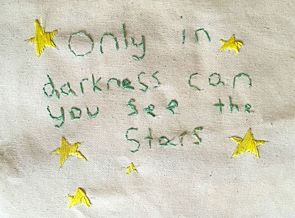 Only in
darkness can
you see the
Stars